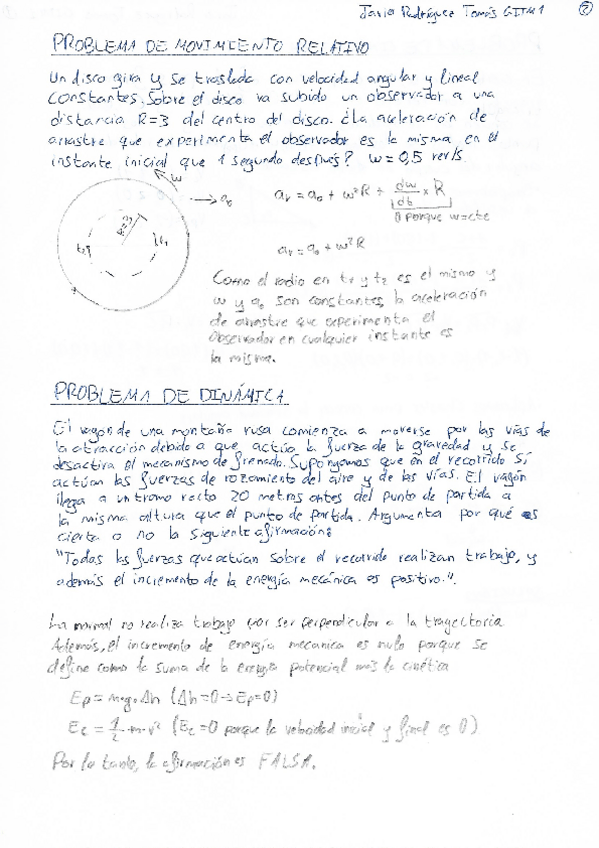 Javio Rodríguez Tomás GITM1 2
PROBLEMA DE MOVIMIENTO RELATIVO
Un disco gira y se traslada con velocidad angular y lineal
constantes. Sobre el disco va subido un observador a una
distancia R=3 del centro del disco. ¿La aceleración de
arrastre que experimenta el observador es la misma en el
instante inicial que 1 segundo después? w=0,5 rev/s.
w
R=3
t2
t1
→ a₀
aᵣ = a₀ + w²R + dw/dt × R
0 porque w=cte
aᵣ = a₀ + w²R
Como el radio en t1 y t2 es el mismo y
w y a₀ son constantes, la aceleración
de arrastre que experimenta el
observador en cualquier instante es
la misma.
PROBLEMA DE DINÁMICA
El vagón de una montaña rusa comienza a moverse por las vías de
la atracción debido a que actúa la fuerza de la gravedad y se
desactiva el mecanismo de frenado. Supongamos que en el recorrido sí
actúan las fuerzas de rozamiento del aire y de las vías. El vagón
llega a un tramo recto 20 metros antes del punto de partida a
la misma altura que el punto de partida. Argumenta por qué es
cierta o no la siguiente afirmación:
"Todas las fuerzas que actúan sobre el recorrido realizan trabajo, y
además el incremento de la energía mecánica es positivo.".
La normal no realiza trabajo por ser perpendicular a la trayectoria
Además, el incremento de energía mecanica es nulo porque se
define como la suma de la energia potencial más la cinética
Ep = m·g·Δh (Δh=0→Ep=0)
Ec = 1/2 · m · v² (Ec=0 porque la velocidad inicial y final es 0)
Por lo tanto, la afirmación es FALSA.